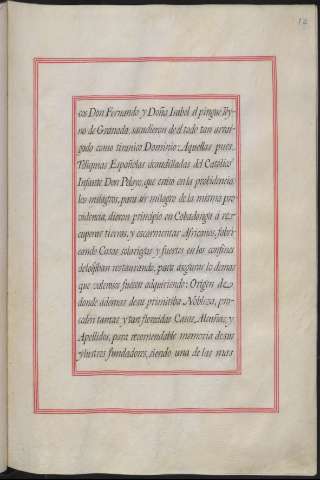 12
cos Don Fernando y Doña Isabel el pingue Rey-
no de Granada, sacudieron de el todo tan arrai-
gado como tiranico Dominio: Aquellas pues,
Reliquias Españolas acaudilladas del Catolico
Infante Don Pelayo, que estivo en la probidencia
los milagros, para ser milagro de la misma pro
videncia, dieron principio en Cobadonga a re-
cuperar tierras, y escarmentar Africanos, fabri-
cando Casas solariegas y fuertes en los confines
de lo que iban restaurando, para asegurar lo demas
que valerosos fuesen adquiriendo: Origen de
donde ademas desta primitiba Nobleza, pro-
ceden tantas y tan floreidas Casas, Alcuñas, y
Apellidos, para recomendable memoria de sus
ylustres fundadores, siendo una de las mas